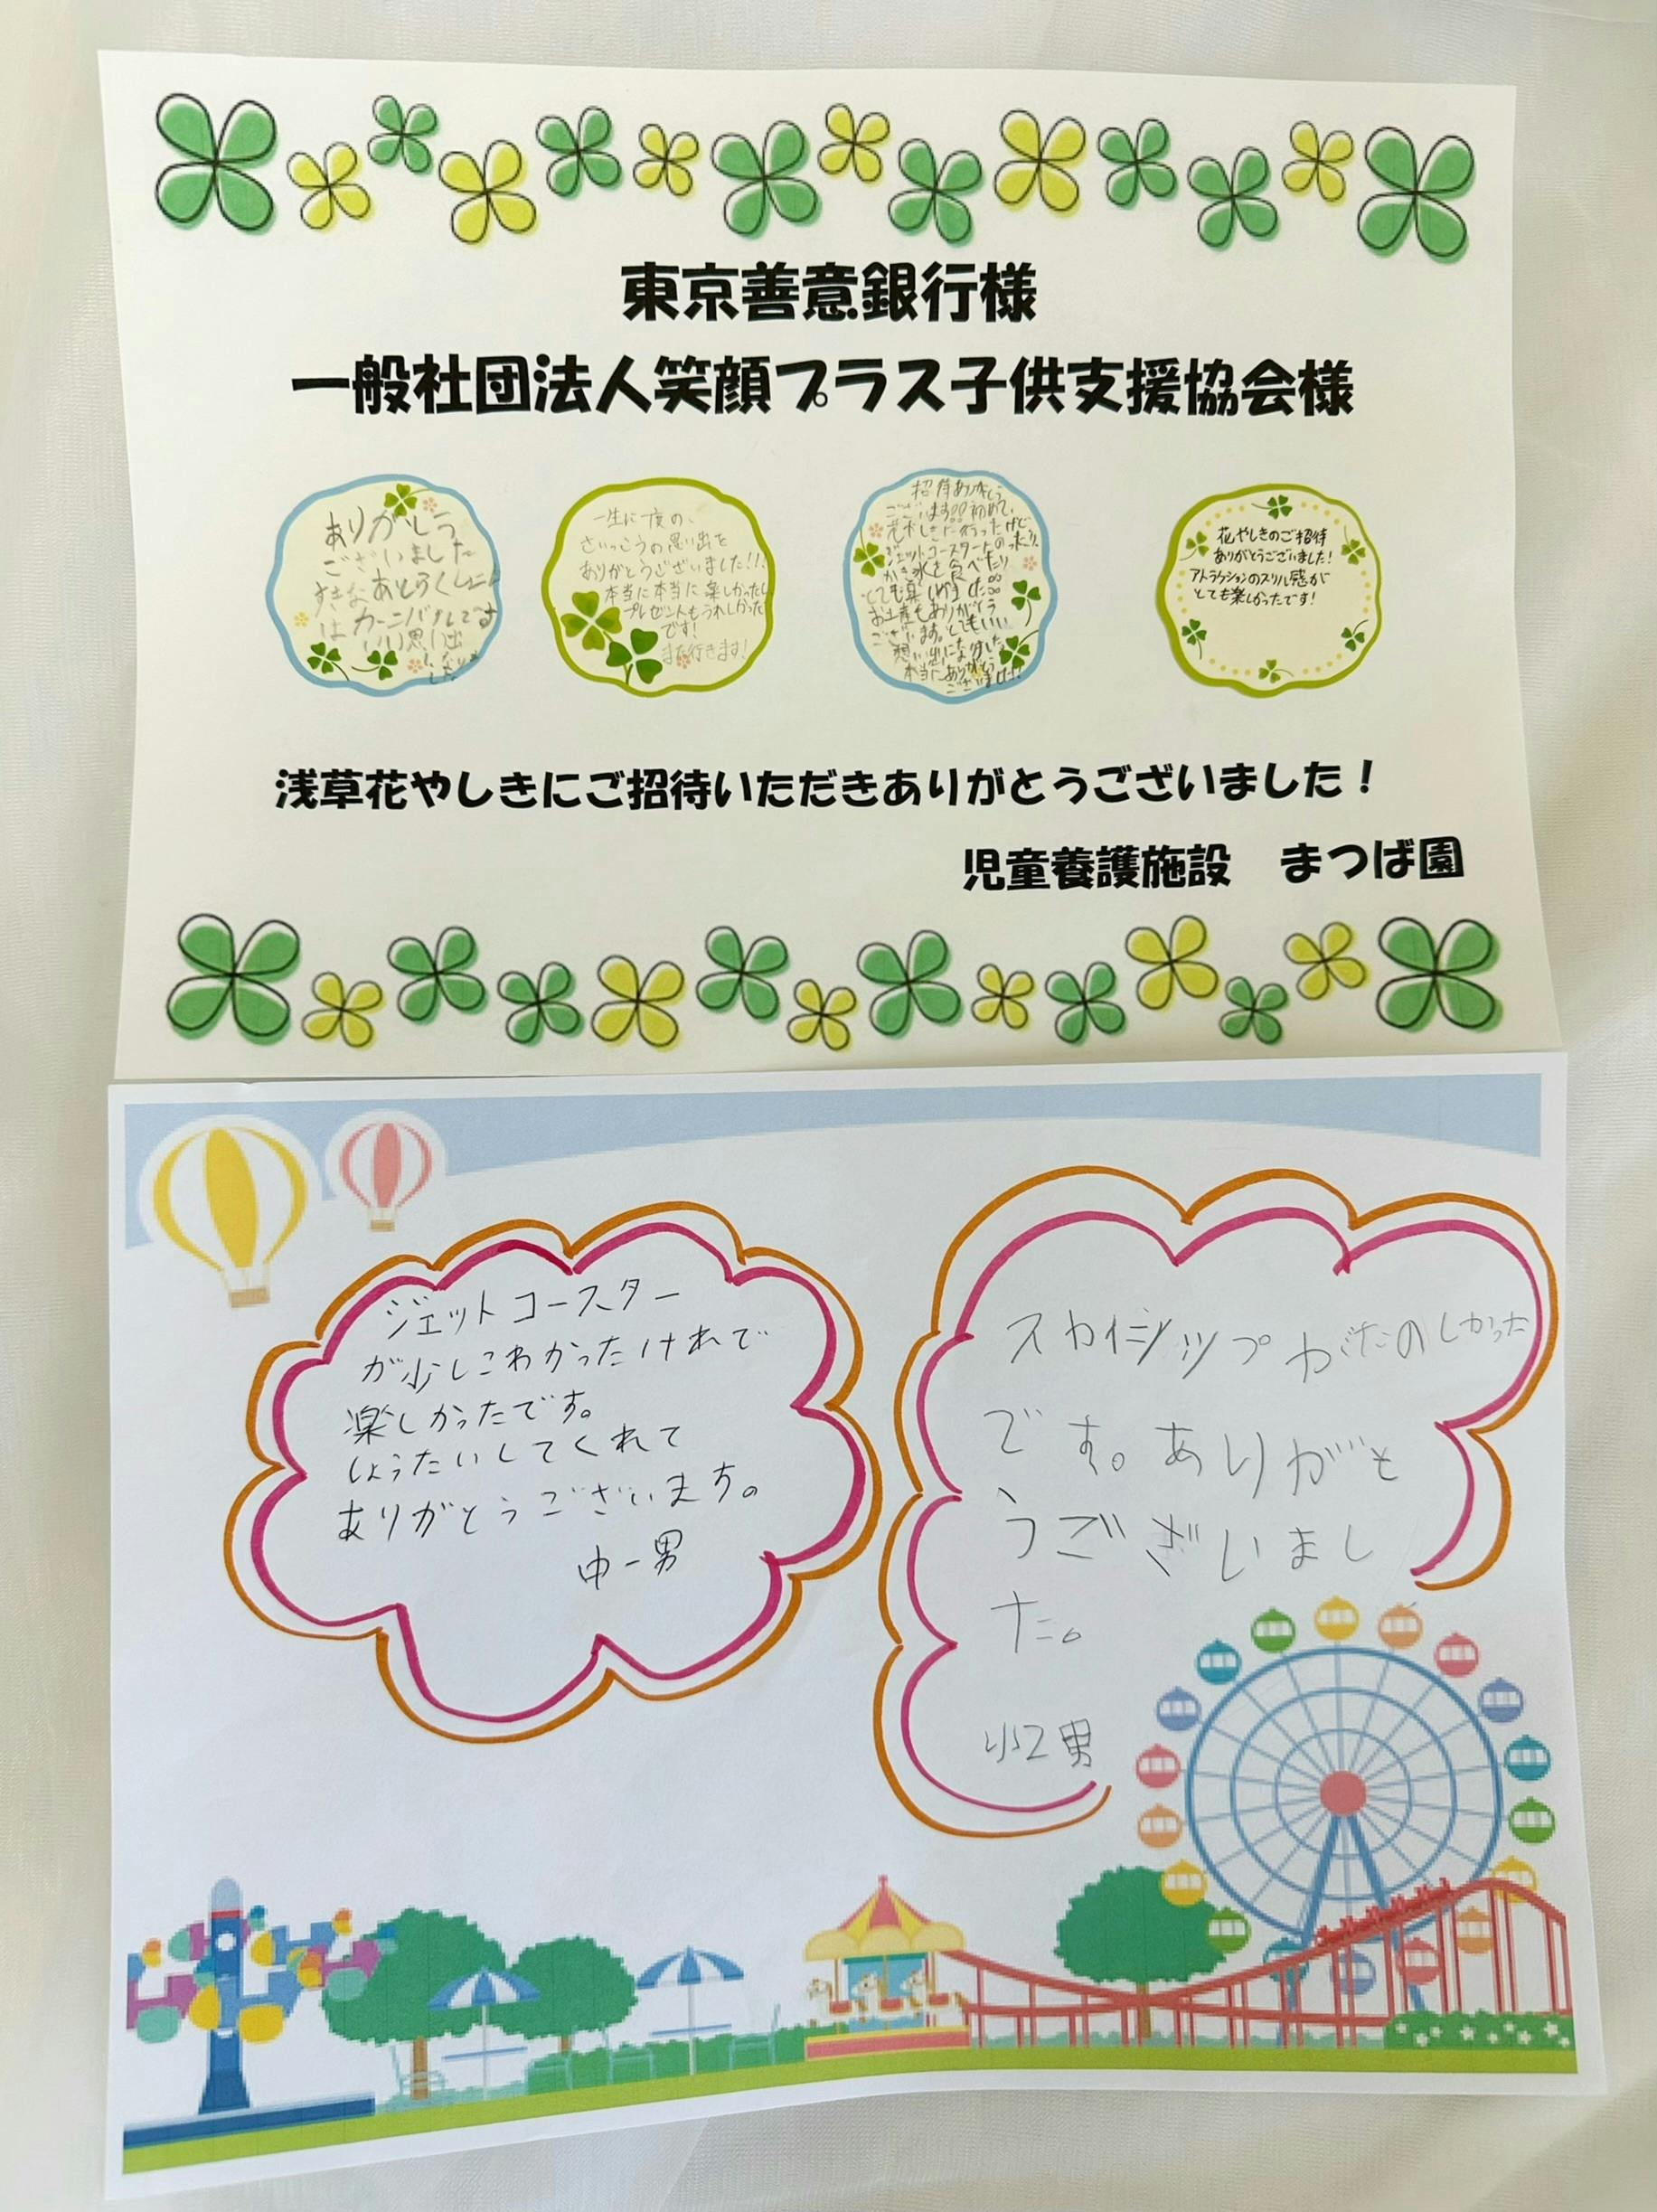 東京善意銀行様
一般社団法人笑顔プラス子供支援協会様
ありがとう
ございました
すきなあとらくしょん
は カーニバルです
いい思い出
一生に一度の、
さいっこうの思い出を
ありがとうございました!!
本当に本当に楽しかったし
プレゼントもうれしかった
です!
また行きます!
招待ありがとう
ございます!!初めて
花やしきに行ったけど
ジェットコースターのったり
かき氷を食べたり
とても楽しめました
お土産もありがとう
ございます。とてもいい
想い出になりました
本当にありがとう
ございました!!
花やしきのご招待
ありがとうございました!
アトラクションのスリル感が
とても楽しかったです!
浅草花やしきにご招待いただきありがとうございました!
児童養護施設 まつば園
ジェットコースター
が少しこわかったけれで
楽しかったです。
しょうたいしてくれて
ありがとうございます。
中一男
スカイシップがたのしかった
です。ありがと
うございまし
た。
小2男